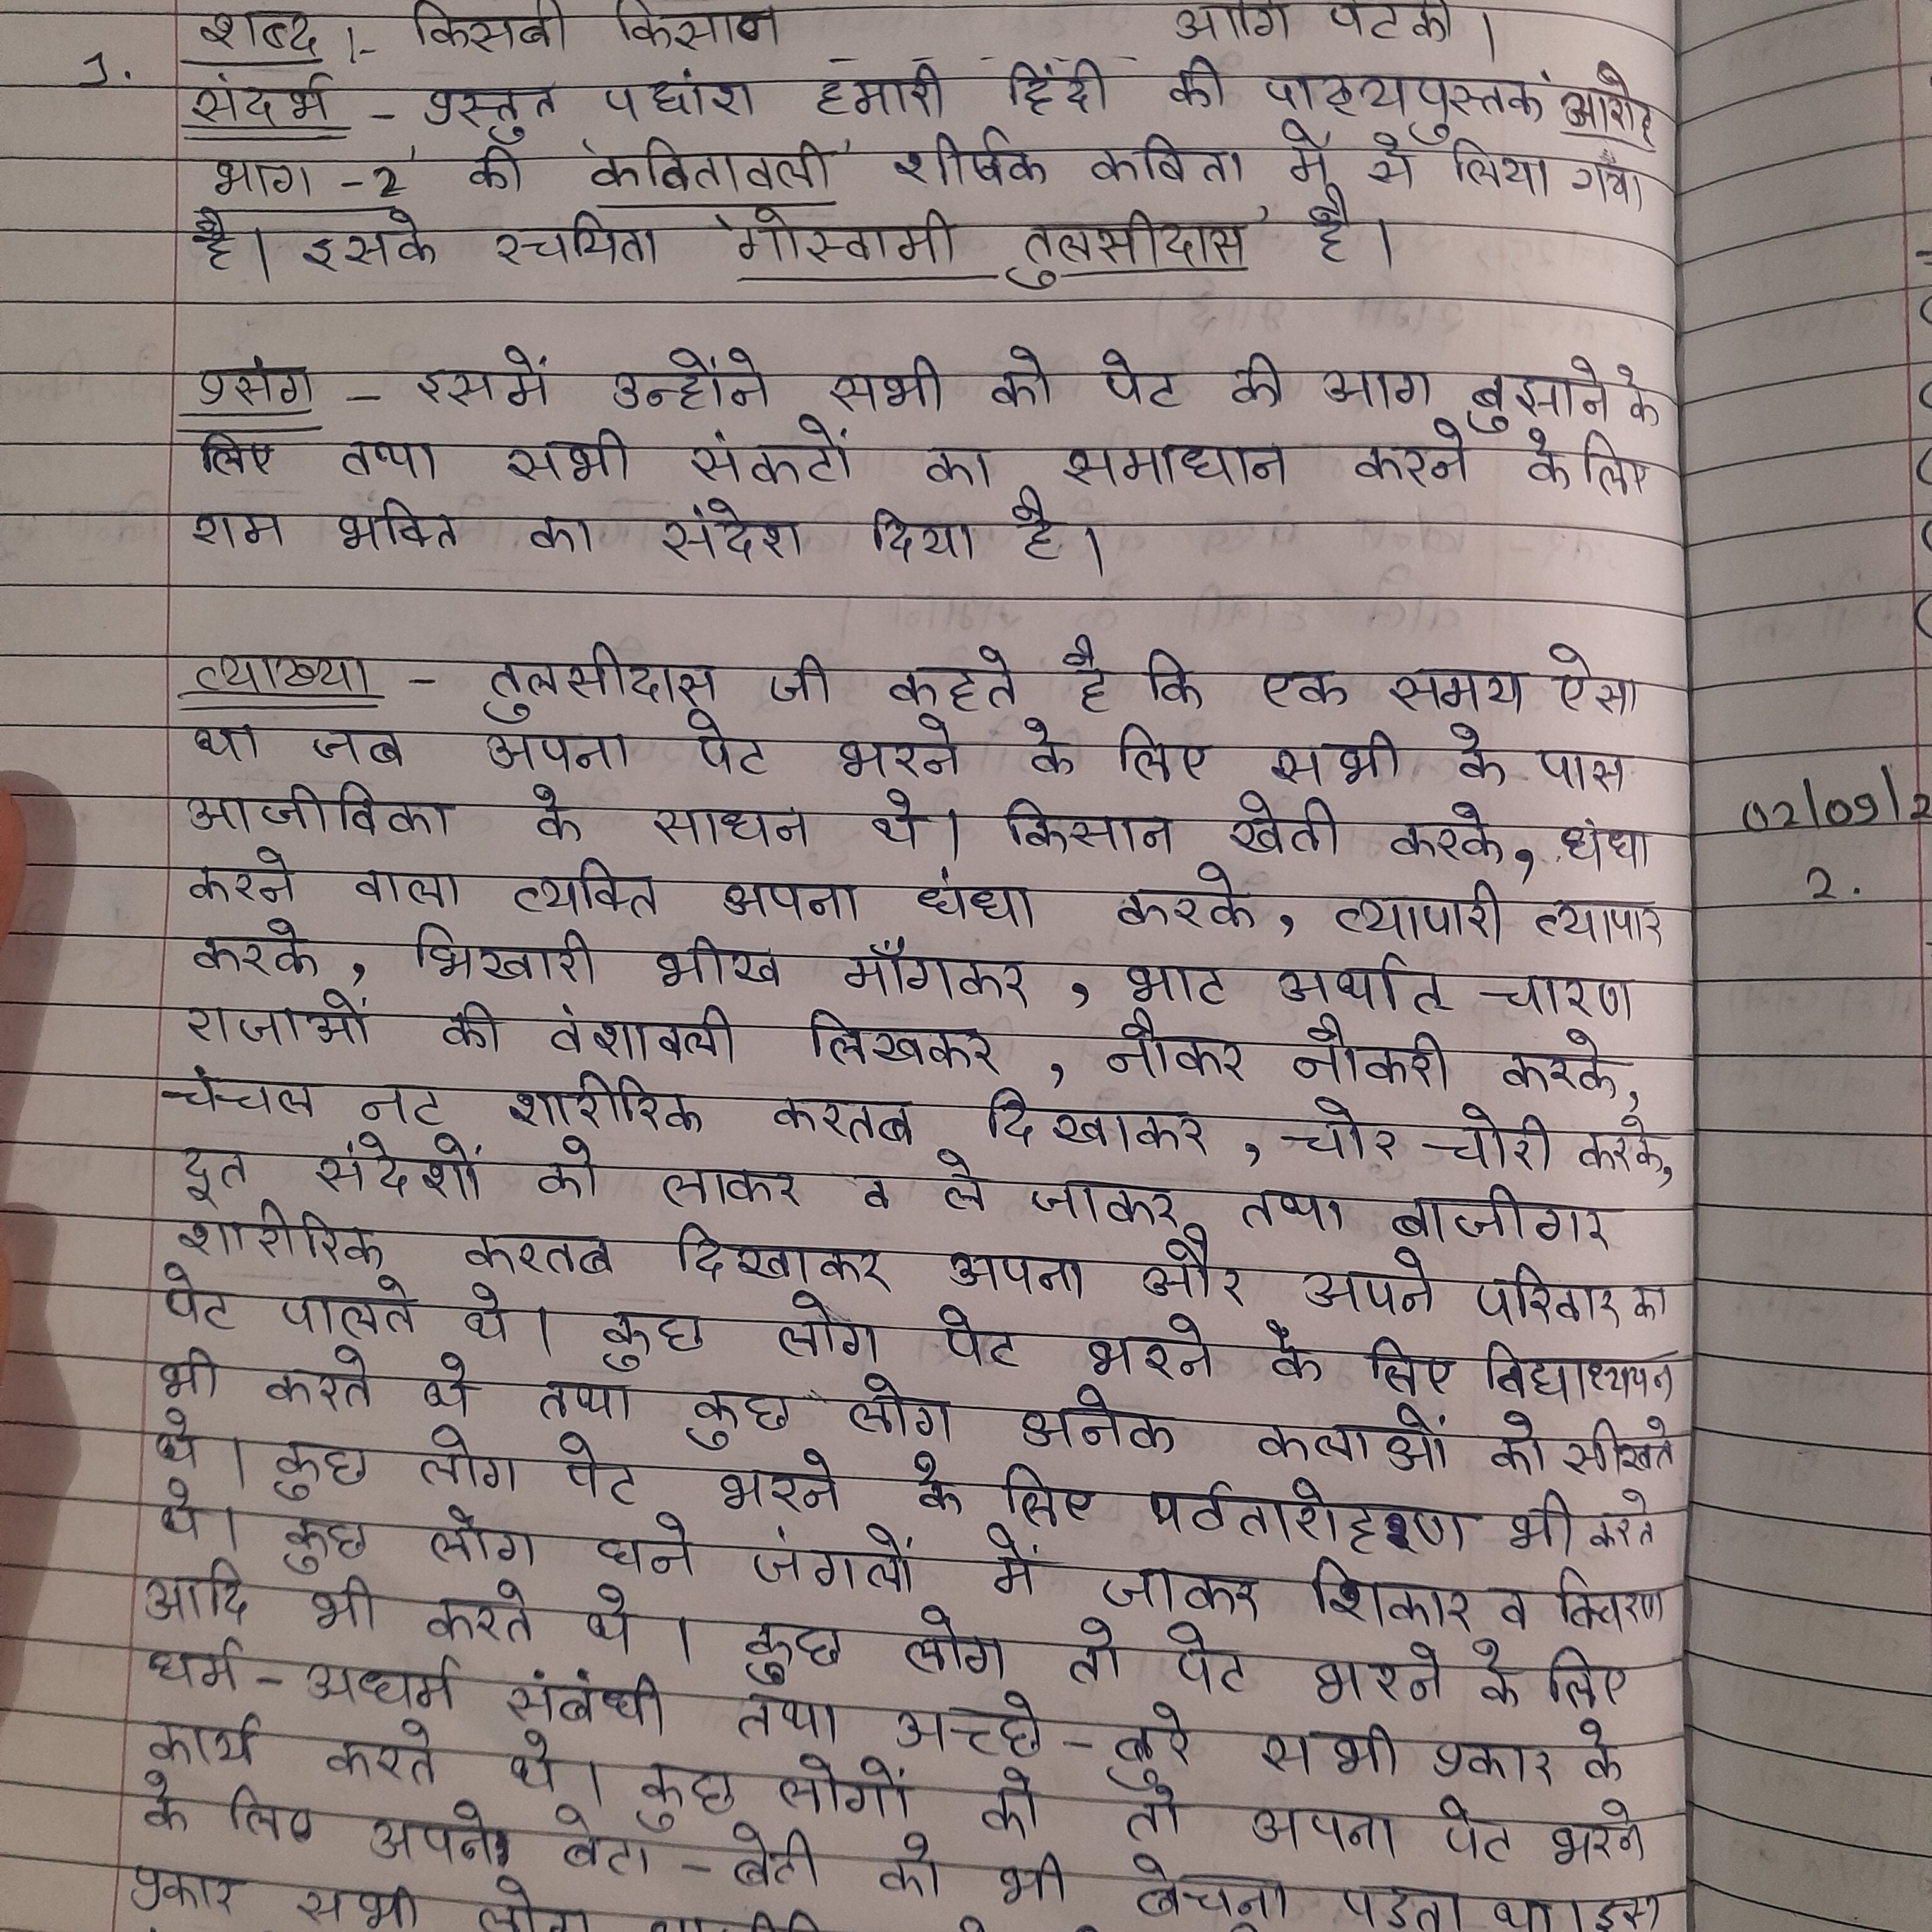 शब्द :- किसबी किसान - - - - - आगि पेटकी।
1.
संदर्भ - प्रस्तुत पद्यांश हमारी हिंदी की पाठ्यपुस्तक 'आरोह
भाग -2' की 'कवितावली' शीर्षक कविता में से लिया गया
है। इसके रचयिता 'गोस्वामी तुलसीदास' है।
प्रसंग - इसमें उन्होंने सभी को पेट की आग बुझाने के
लिए तथा सभी संकटों का समाधान करने के लिए
राम भक्ति का संदेश दिया है।
व्याख्या - तुलसीदास जी कहते है कि एक समय ऐसा
था जब अपना पेट भरने के लिए सभी के पास
आजीविका के साधन थे। किसान खेती करके, धंधा
करने वाला व्यक्ति अपना धंधा करके, व्यापारी व्यापार
करके, भिखारी भीख माँगकर, भाट अर्थात चारण
राजाओं की वंशावली लिखकर, नौकर नौकरी करके,
चंचल नट शारीरिक करतब दिखाकर, चोर चोरी करके,
दूत संदेशों को लाकर व ले जाकर तथा बाजीगर
शारीरिक करतब दिखाकर अपना और अपने परिवार का
पेट पालते थे। कुछ लोग पेट भरने के लिए विद्याध्ययन
भी करते थे तथा कुछ लोग अनेक कलाओं को सीखते
थे। कुछ लोग पेट भरने के लिए पर्वतारोहण भी करते
थे। कुछ लोग घने जंगलों में जाकर शिकार व विचरण
आदि भी करते थे। कुछ लोग तो पेट भरने के लिए
धर्म-अधर्म संबंधी तथा अच्छे-बुरे सभी प्रकार के
कार्य करते थे। कुछ लोगों को तो अपना पेट भरने
के लिए अपने बेटा-बेटी को भी बेचना पड़ता था। इस
प्रकार सभी लोग
02/09/2
2.